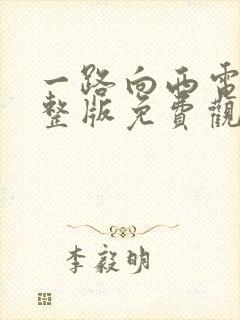 一路向西電
整版免費觀
李毅明